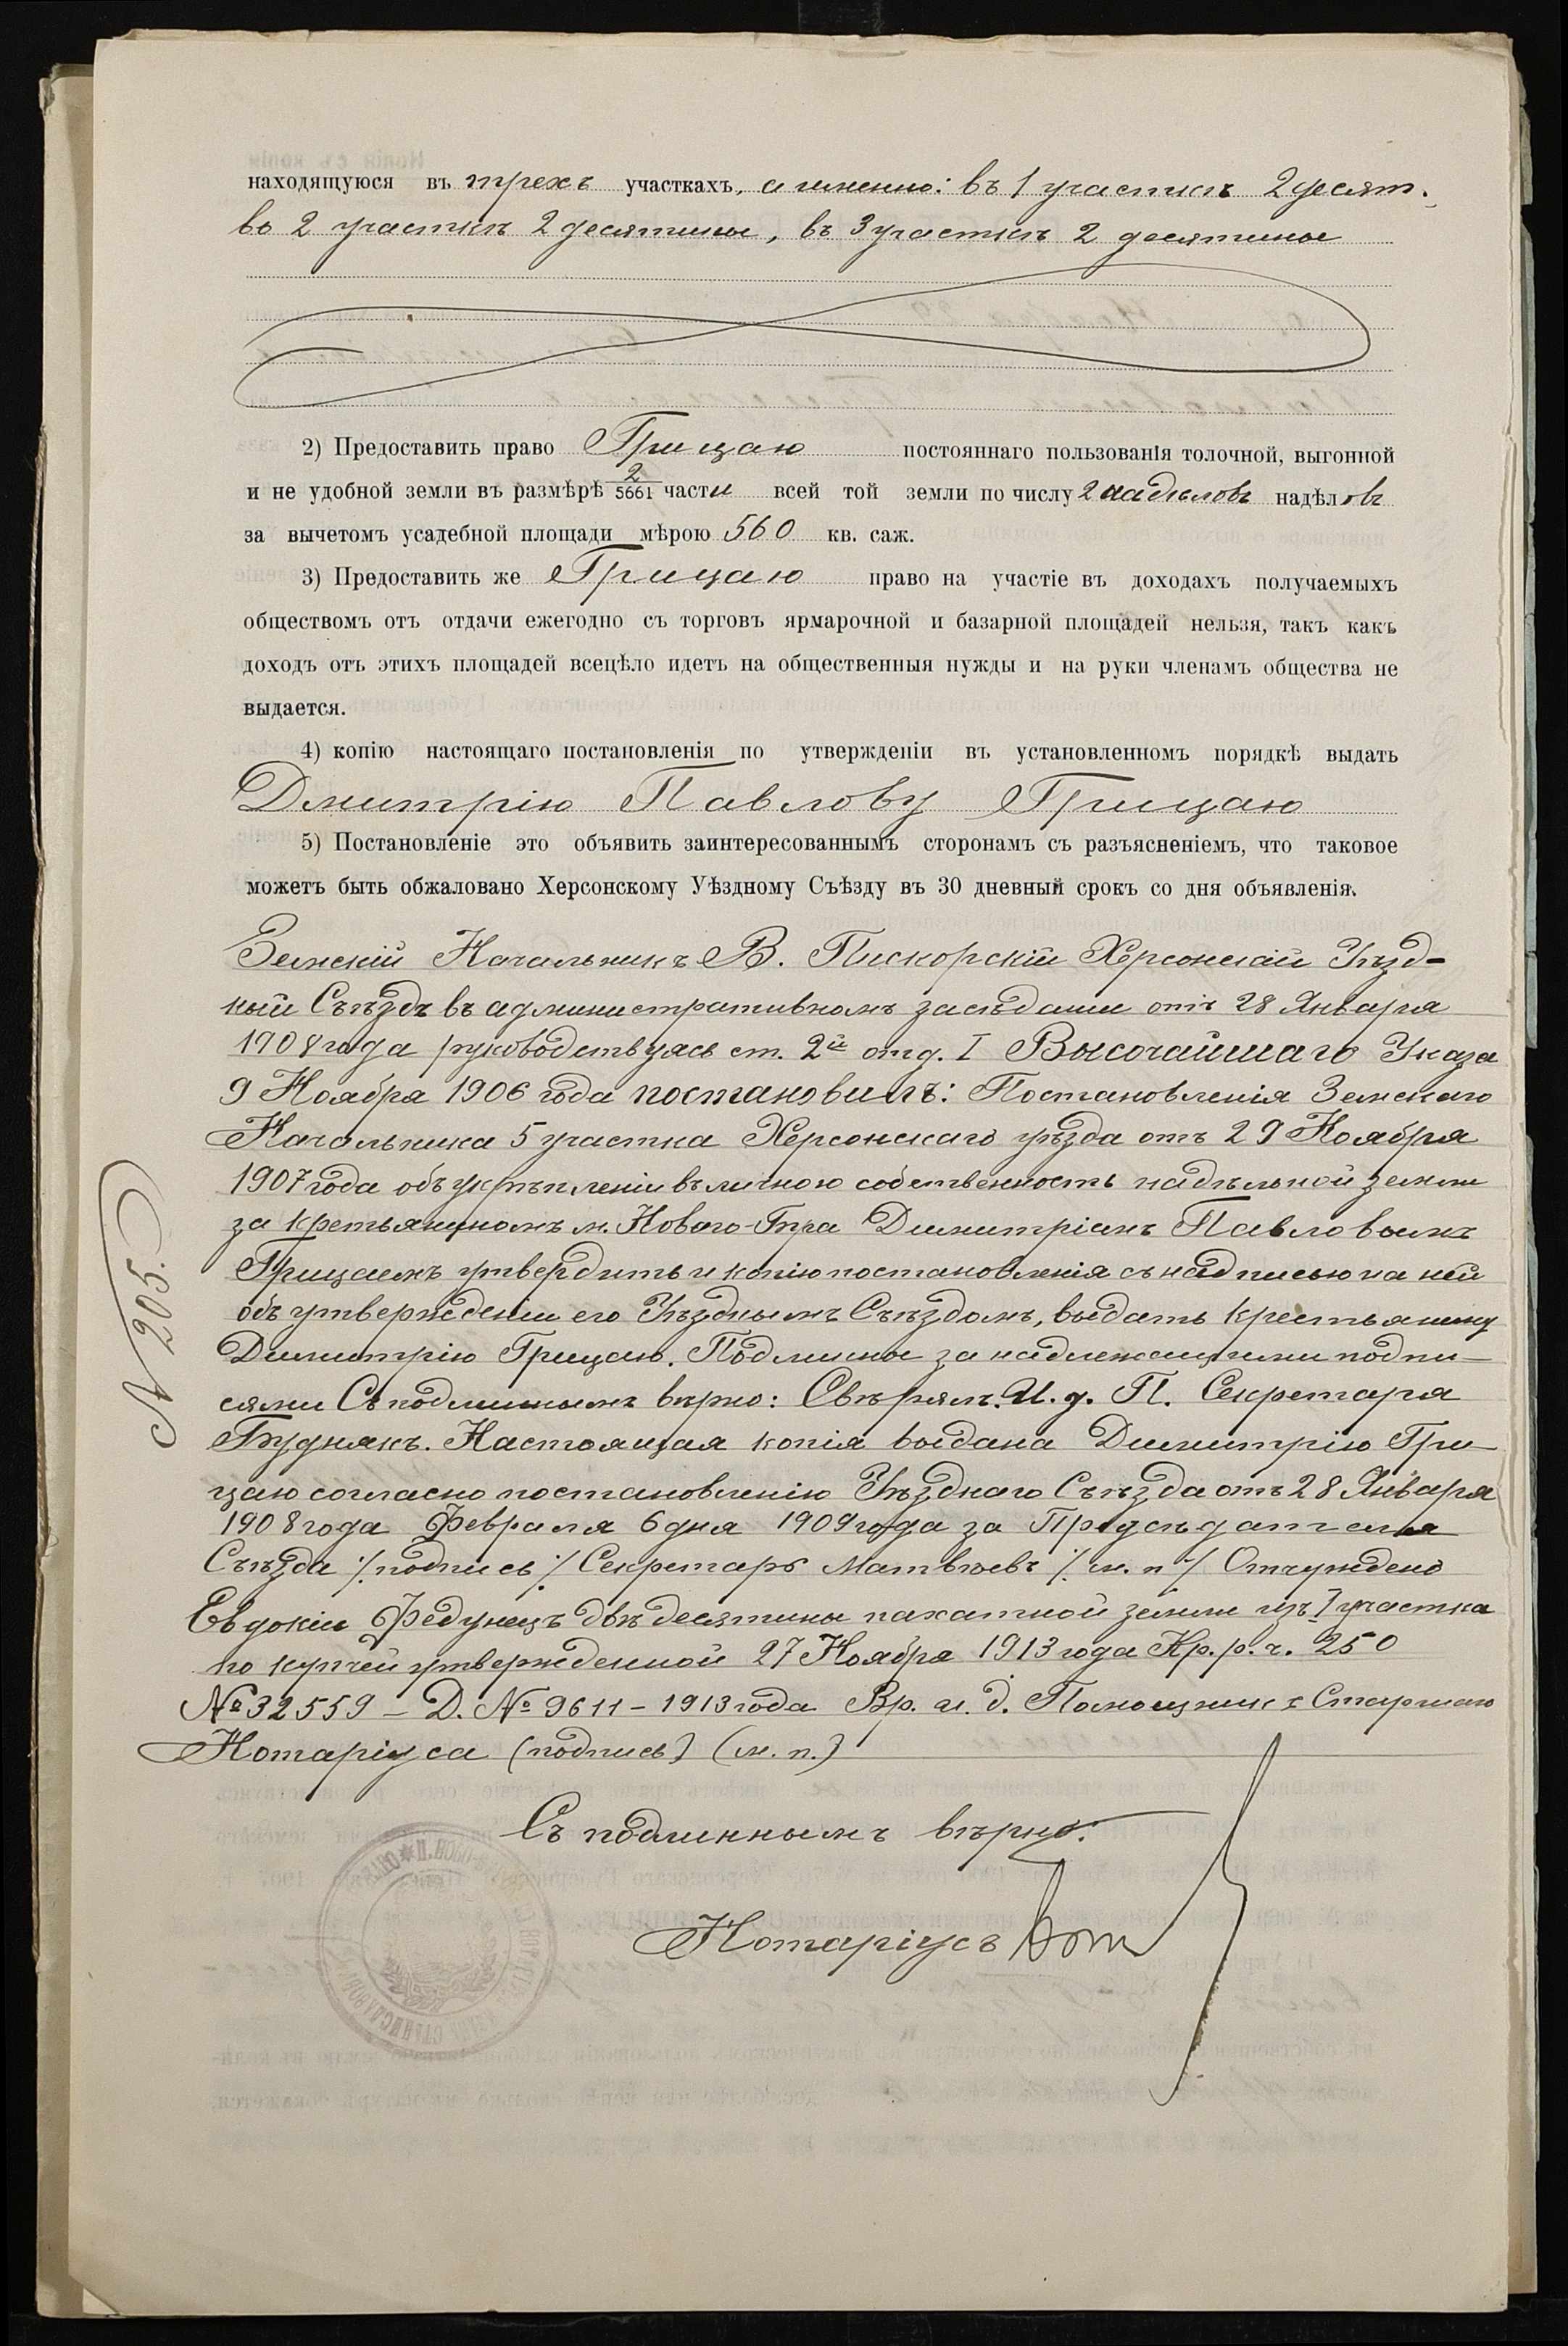 находящуюся въ трехъ участкахъ, а именно: въ 1 участкѣ 2 десят.
во 2 участкѣ 2 десятины, въ 3 участкѣ 2 десятины
2) Предоставить право Грицаю постояннаго пользованія толочной, выгонной
и не удобной земли въ размѣрѣ 2/5661 части всей той земли по числу 2 надѣловъ надѣловъ
за вычетомъ усадебной площади мѣрою 560 кв. саж.
3) Предоставить же Грицаю право на участіе въ доходахъ получаемыхъ
обществомъ отъ отдачи ежегодно съ торговъ ярмарочной и базарной площадей нельзя, такъ какъ
доходъ отъ этихъ площадей всецѣло идетъ на общественныя нужды и на руки членамъ общества не
выдается.
4) копію настоящаго постановленія по утвержденіи въ установленномъ порядкѣ выдать
Дмитрію Павлову Грицаю
5) Постановленіе это объявить заинтересованнымъ сторонамъ съ разъясненіемъ, что таковое
можетъ быть обжаловано Херсонскому Уѣздному Съѣзду въ 30 дневный срокъ со дня объявленія.
Земскій Начальникъ В. Пискорскій Херсонскій Уѣзд-
ный Съѣздъ въ административномъ засѣданіи отъ 28 Января
1908 года руководствуясь ст. 2й отд. I Высочайшаго Указа
9 Ноября 1906 года постановилъ: Постановленія Земскаго
Начальника 5 участка Херсонскаго уѣзда отъ 29 Ноября
1907 года объ укрѣпленіи въ личною собственность надѣльной земли
за кретьяниномъ м. Новаго-Буга Димитріемъ Павловымъ
Грицаемъ утвердить и копію постановленія съ надписью на ней
объ утвержденіи его Уѣзднымъ Съѣздомъ, выдать крестьянину
Димитрію Грицаю. Подлинное за надлежащими подпи-
сями Съ подлиннымъ вѣрно: Свѣрялъ: И. д. П. Секретаря
Буднякъ. Настоящая копія выдана Димитрію Гри-
цаю согласно постановленію Уѣзднаго Съѣзда отъ 28 Января
1908 года Февраля 6 дня 1909 года за Предсѣдателя
Съѣзда /подпись/ Секретарь Матвѣевъ /м. п/ Отчуждено
Евдокіи Федунецъ двѣ десятины пахатной земли изъ I участка
по купчей утвержденной 27 Ноября 1913 года Кр. р. ч. 250
№ 32559 – Д. № 9611 – 1913 года Вр. и. д. Помощникъ Старшаго
Нотаріуса (подпись) (м. п.)
Съ подлиннымъ вѣрно:
Нотаріусъ
№ 205.